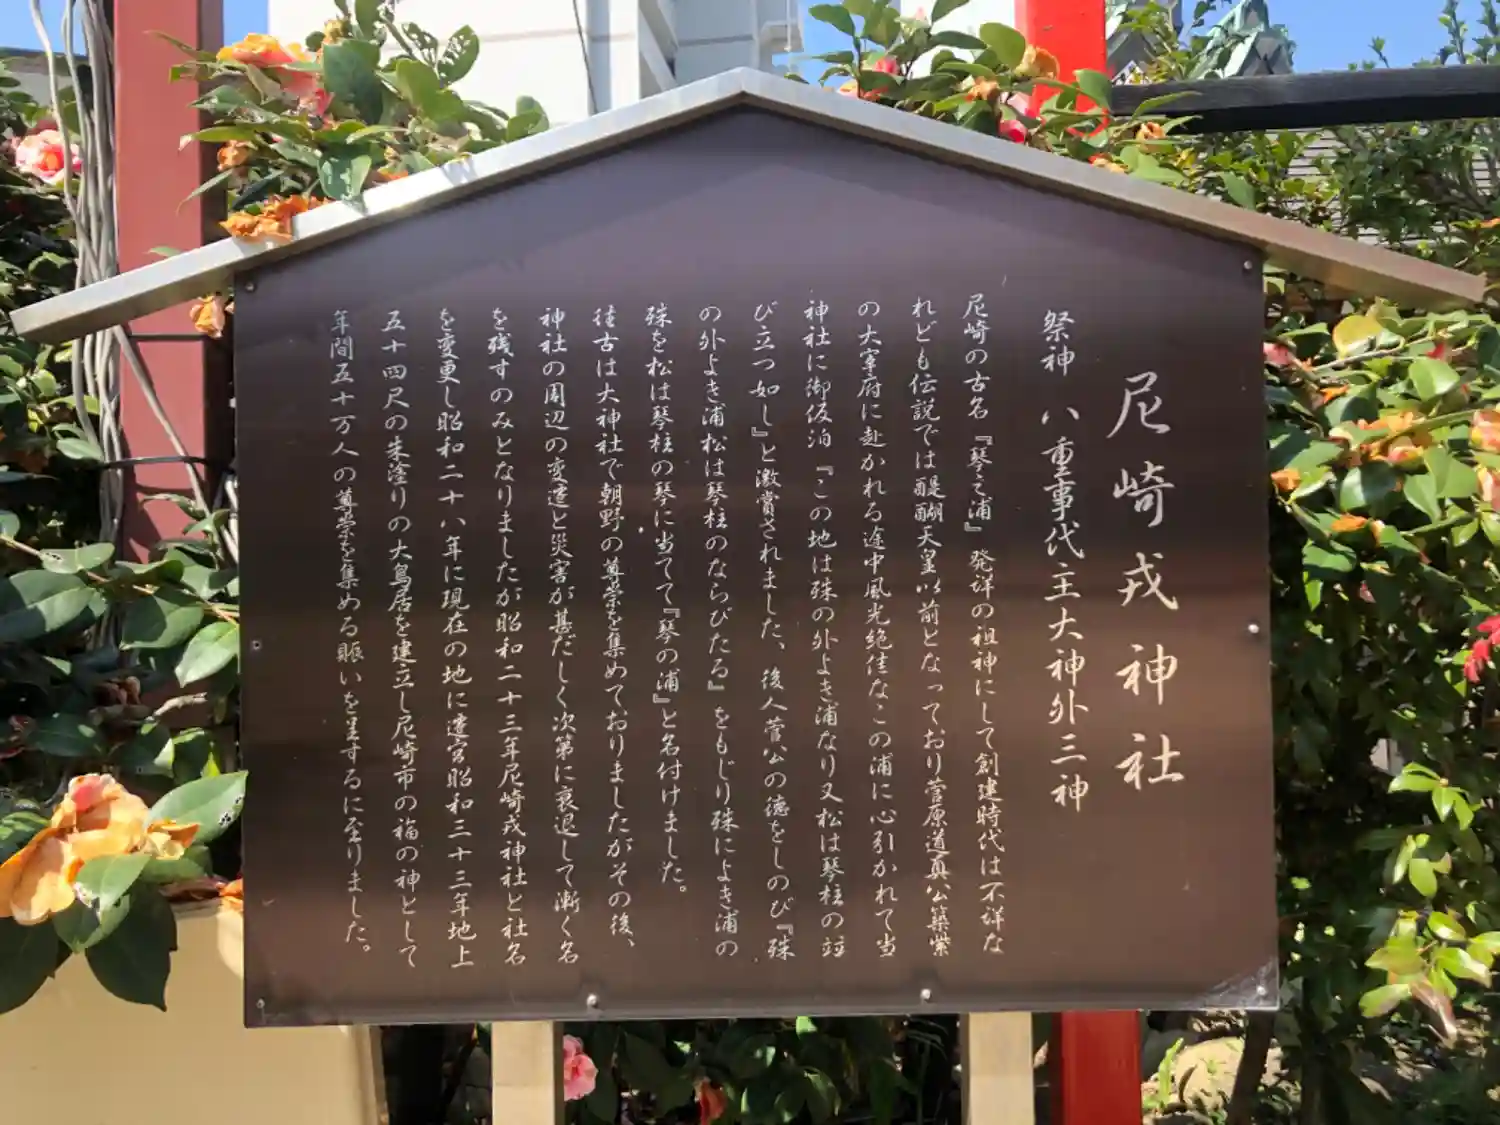 尼崎戎神社
祭神 八重事代主大神外三神
尼崎の古名『琴之浦』発祥の祖神にして創建時代は不詳な
れども伝説では醍醐天皇以前となっており菅原道真公築紫
の大宰府に赴かれる途中風光絶佳なこの浦に心引かれて当
神社に御仮泊『この地は殊の外よき浦なり又松は琴柱の竝
び立つ如し』と激賞されました、後人菅公の徳をしのび『殊
の外よき浦松は琴柱のならびたる』をもじり殊によき浦の
殊を松は琴柱の琴に当てて『琴の浦』と名付けました。
往古は大神社で朝野の尊崇を集めておりましたがその後、
神社の周辺の変遷と災害が甚だしく次第に衰退して漸く名
を残すのみとなりましたが昭和二十三年尼崎戎神社と社名
を変更し昭和二十八年に現在の地に遷宮昭和三十三年地上
五十四尺の朱塗りの大鳥居を建立し尼崎市の福の神として
年間五十万人の尊崇を集める賑いを呈するに至りました。